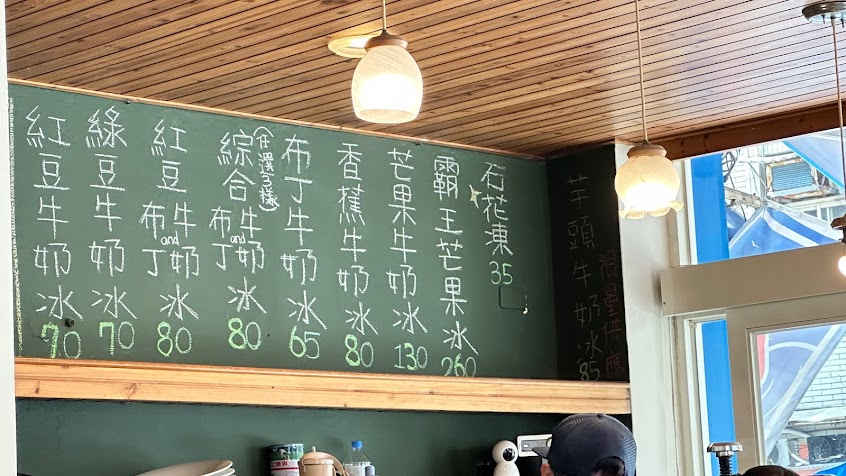 紅豆牛奶冰 70
綠豆牛奶冰 70
紅豆牛奶and布丁冰 80
綜合(任選三樣)牛奶and布丁冰 80
布丁牛奶冰 65
香蕉牛奶冰 80
芒果牛奶冰 130
霸王芒果冰 260
石花凍 35
芋頭牛奶冰 85
限量供應